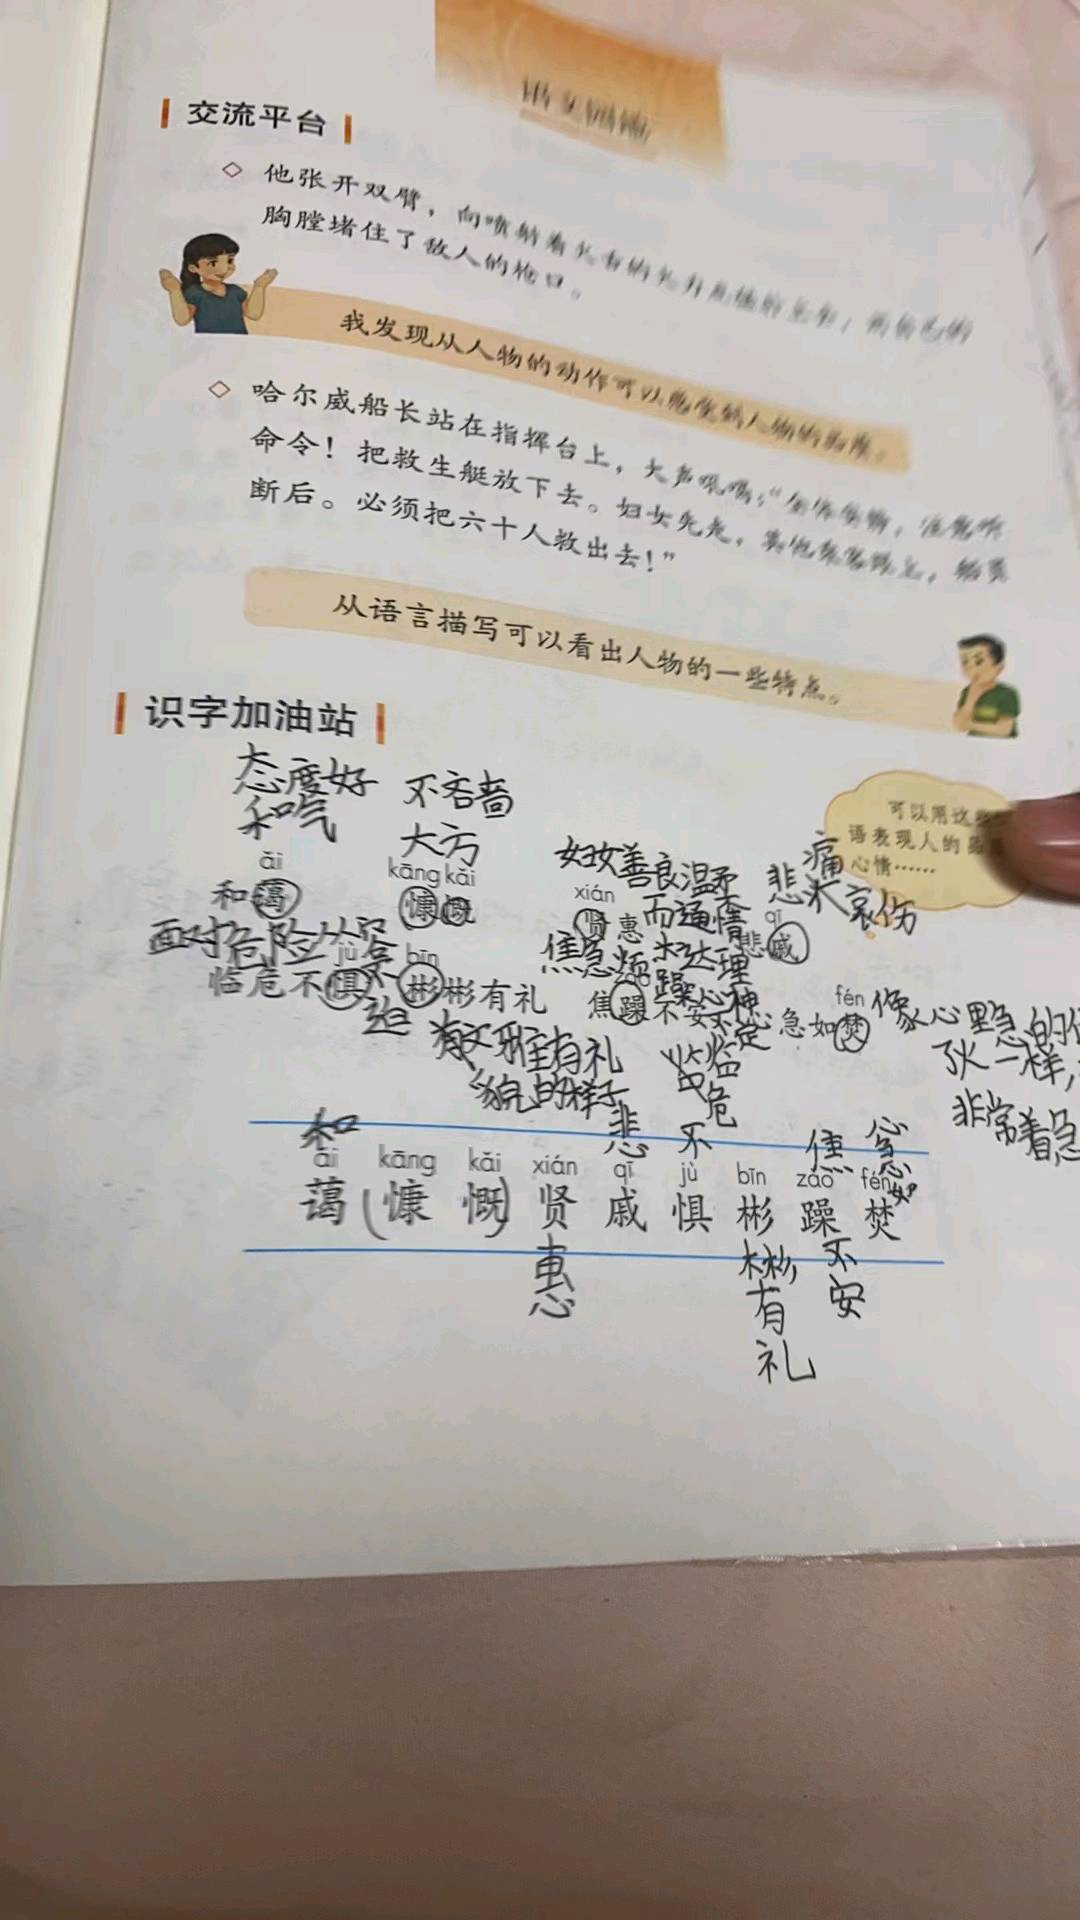 语文园地
交流平台
◇ 他张开双臂，向喷射着火舌的火力点猛扑上去，用自己的
胸膛堵住了敌人的枪口。
我发现从人物的动作可以感受到人物的品质。
◇ 哈尔威船长站在指挥台上，大声吼喝：“全体安静，注意听
命令！把救生艇放下去。妇女先走，其他乘客跟上，船员
断后。必须把六十人救出去！”
从语言描写可以看出人物的一些特点。
识字加油站
态度好
和气
不吝啬
大方
可以用这些
语表现人的品
心情……
妇女善良温柔
而通情
达理
悲痛
哀伤
ǎi
和蔼
kāng kǎi
慷慨
xián
贤惠
qī
悲戚
面对危险从容
不
迫
焦急烦
躁心神
不定
jù
临危不惧
bīn
彬彬有礼
焦躁不安
fén
心急如焚
像心里急的
火一样，
非常着急
有礼
貌的样子
临
危
不
和
悲
焦
心
急
如
ǎi kāng kǎi xián qī jù bīn zào fén
蔼（慷 慨）贤 戚 惧 彬 躁 焚
惠
彬
有
礼
不
安